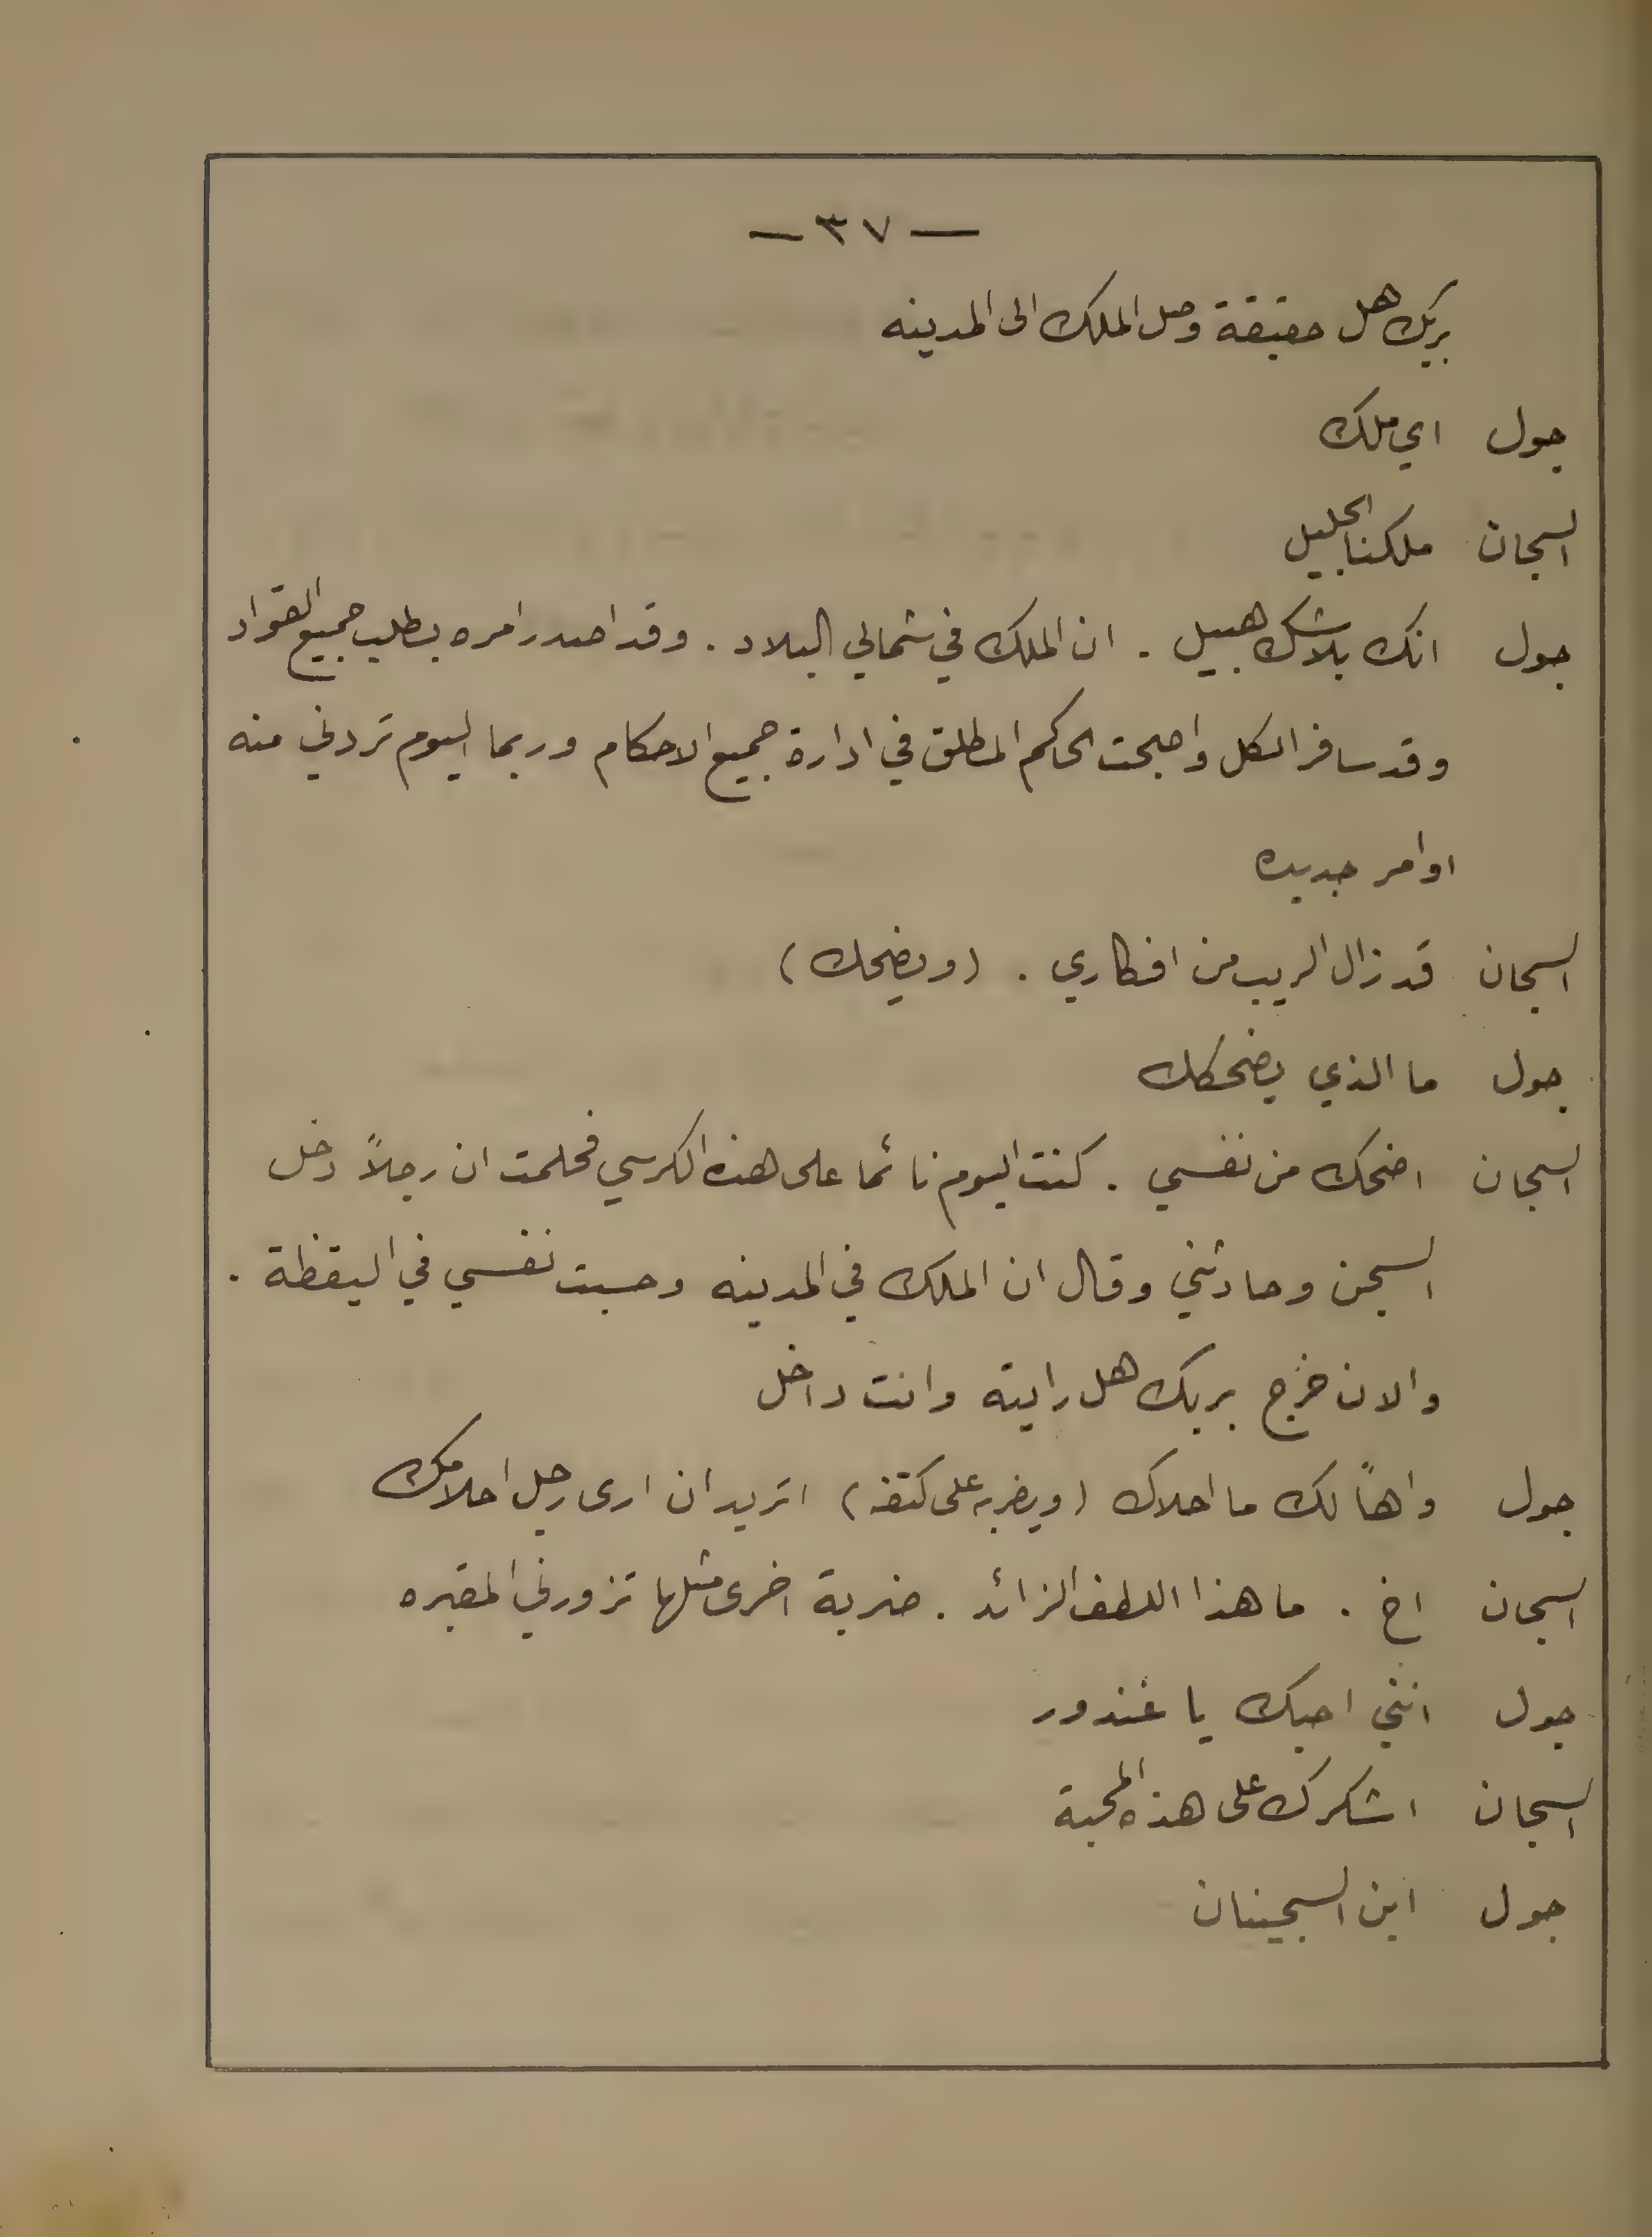 — ٣٧ —
بربك هل حقيقة وصل الملك الى المدينه
جول اي ملك
السجان ملكنا الجليل
جول انك بلا شك هبيل . ان الملك في شمالي البلاد . وقد اصدر امره بطلب جميع القواد
وقد سافر الكل واصبحت الحاكم المطلق في ادارة جميع الاحكام وربما اليوم تردني منه
اوامر جديده
السجان قد زال الريب من افكاري . (ويضحك)
جول ما الذي يضحكك
السجان اضحك من نفسي . كنت اليوم نائما على هذه الكرسي فحلمت ان رجلاً دخل
السجن وحادثني وقال ان الملك في المدينه وحسبت نفسي في اليقظة .
والان خرج بربك هل رايته وانت داخل
جول واهاً لك ما احلاك (ويضربه على كتفه) اتريد ان ارى رجل احلامك
السجان اخ . ما هذا اللطف الزائد . ضربة اخرى مثلها تزورني المقبره
جول انني احبك يا غندور
السجان اشكرك على هذه المحبة
جول اين السجينان